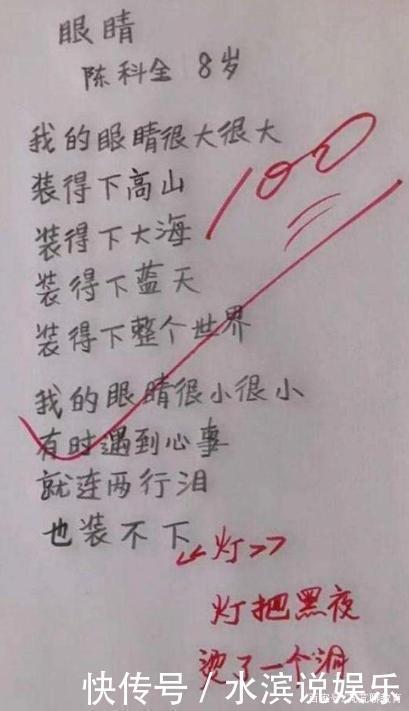 眼睛
陈科全 8岁
我的眼睛很大很大
装得下高山
装得下大海
装得下蓝天
装得下整个世界
我的眼睛很小很小
有时遇到心事
就连两行泪
也装不下
100
《灯》
灯把黑夜
烫了一个洞
快传号/水滨说娱乐